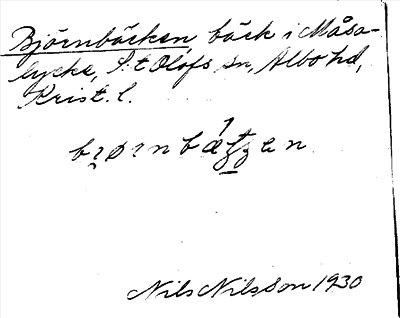 Björnbäcken, bäck i Måsa-
lycke, S:t Olofs sn, Albo hd,
Krist. l.
Nils Nilsson 1930